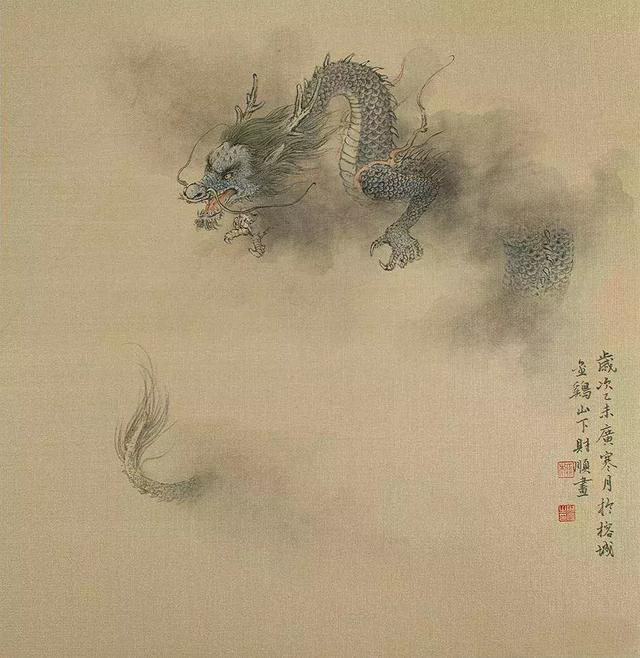 歲次乙未廣寒月於榕城
金鷄山下財順畫